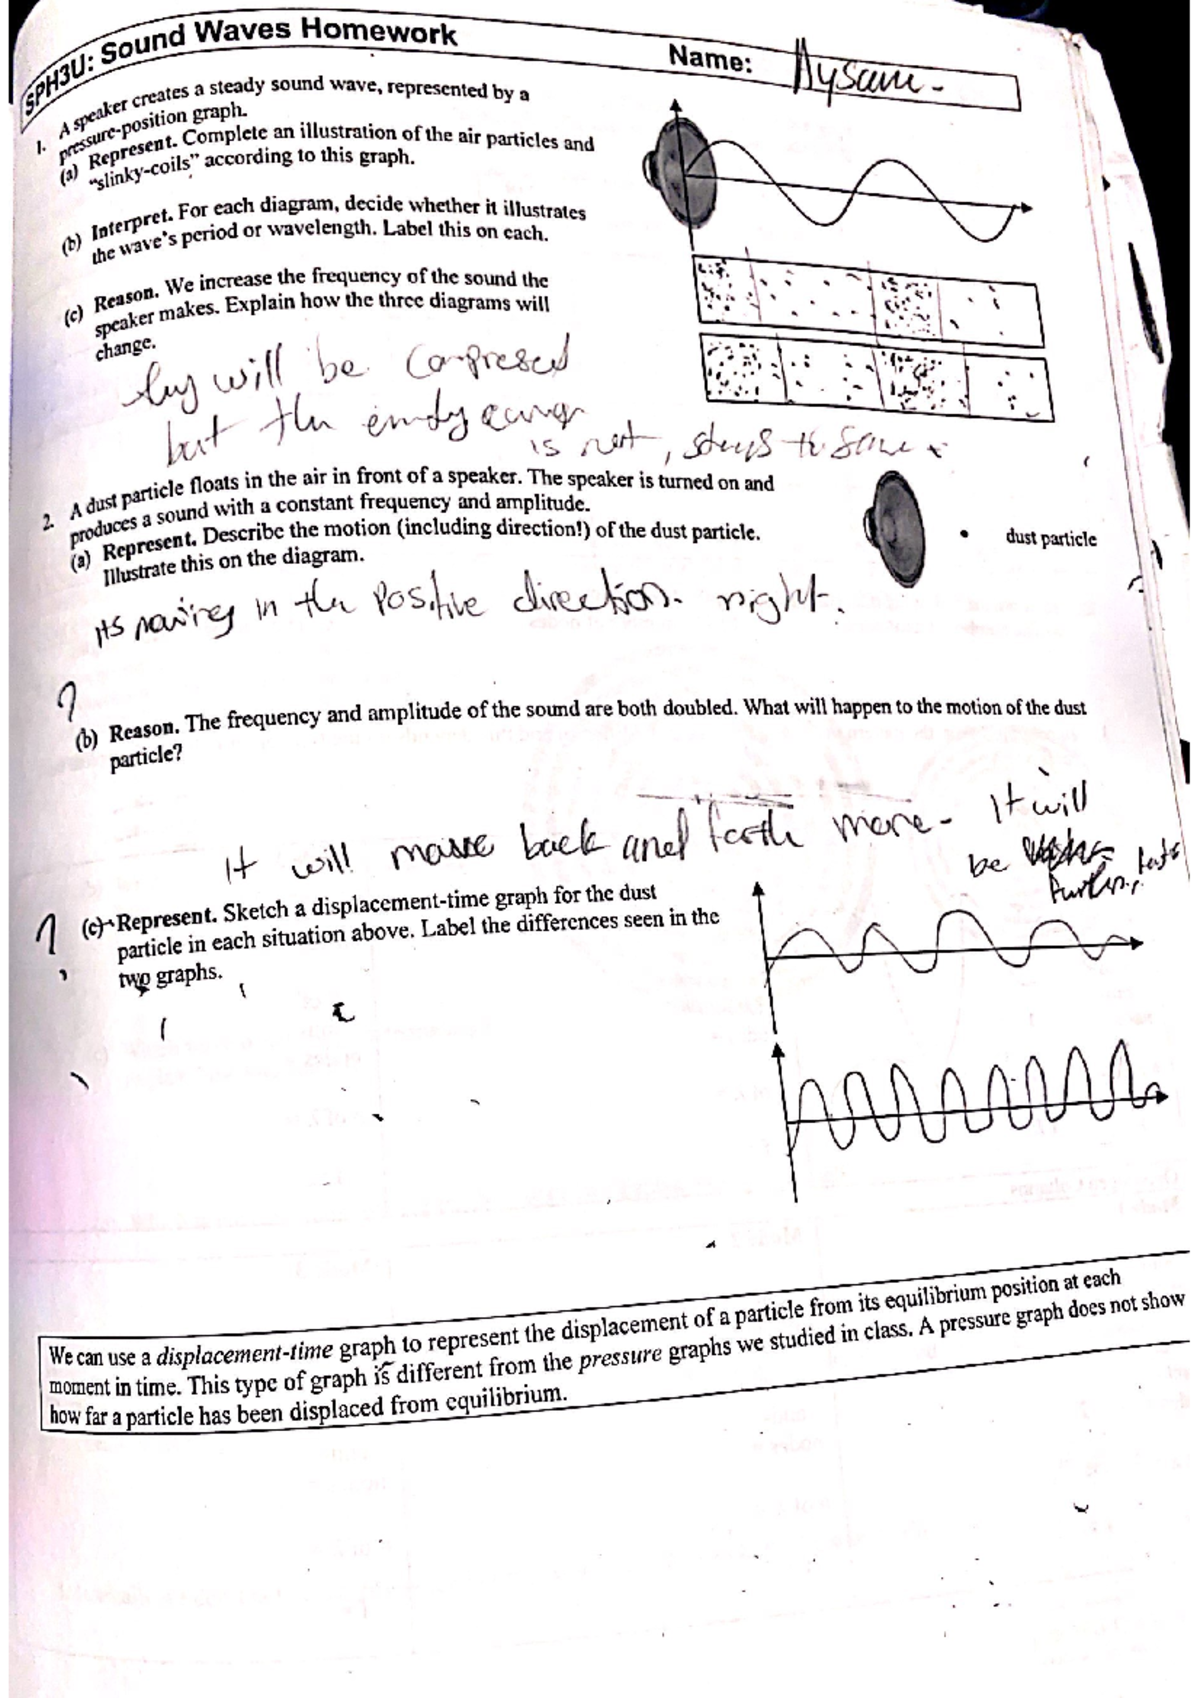 SPH3U: Sound Waves Homework
Name:
1. A speaker creates a steady sound wave, represented by a
pressure-position graph.
(a) Represent. Complete an illustration of the air particles and
"slinky-coils" according to this graph.
(b) Interpret. For each diagram, decide whether it illustrates
the wave's period or wavelength. Label this on each.
(c) Reason. We increase the frequency of the sound the
speaker makes. Explain how the three diagrams will
change.
will be compresed
but the
is not, stays the same
2. A dust particle floats in the air in front of a speaker. The speaker is turned on and
produces a sound with a constant frequency and amplitude.
(a) Represent. Describe the motion (including direction!) of the dust particle.
Illustrate this on the diagram.
dust particle
its moving in the Positive direction. right.
?
(b) Reason. The frequency and amplitude of the sound are both doubled. What will happen to the motion of the dust
particle?
It will move back and forth more. It will
be
?
(c) Represent. Sketch a displacement-time graph for the dust
particle in each situation above. Label the differences seen in the
two graphs.
We can use a displacement-time graph to represent the displacement of a particle from its equilibrium position at each
moment in time. This type of graph is different from the pressure graphs we studied in class. A pressure graph does not show
how far a particle has been displaced from equilibrium.